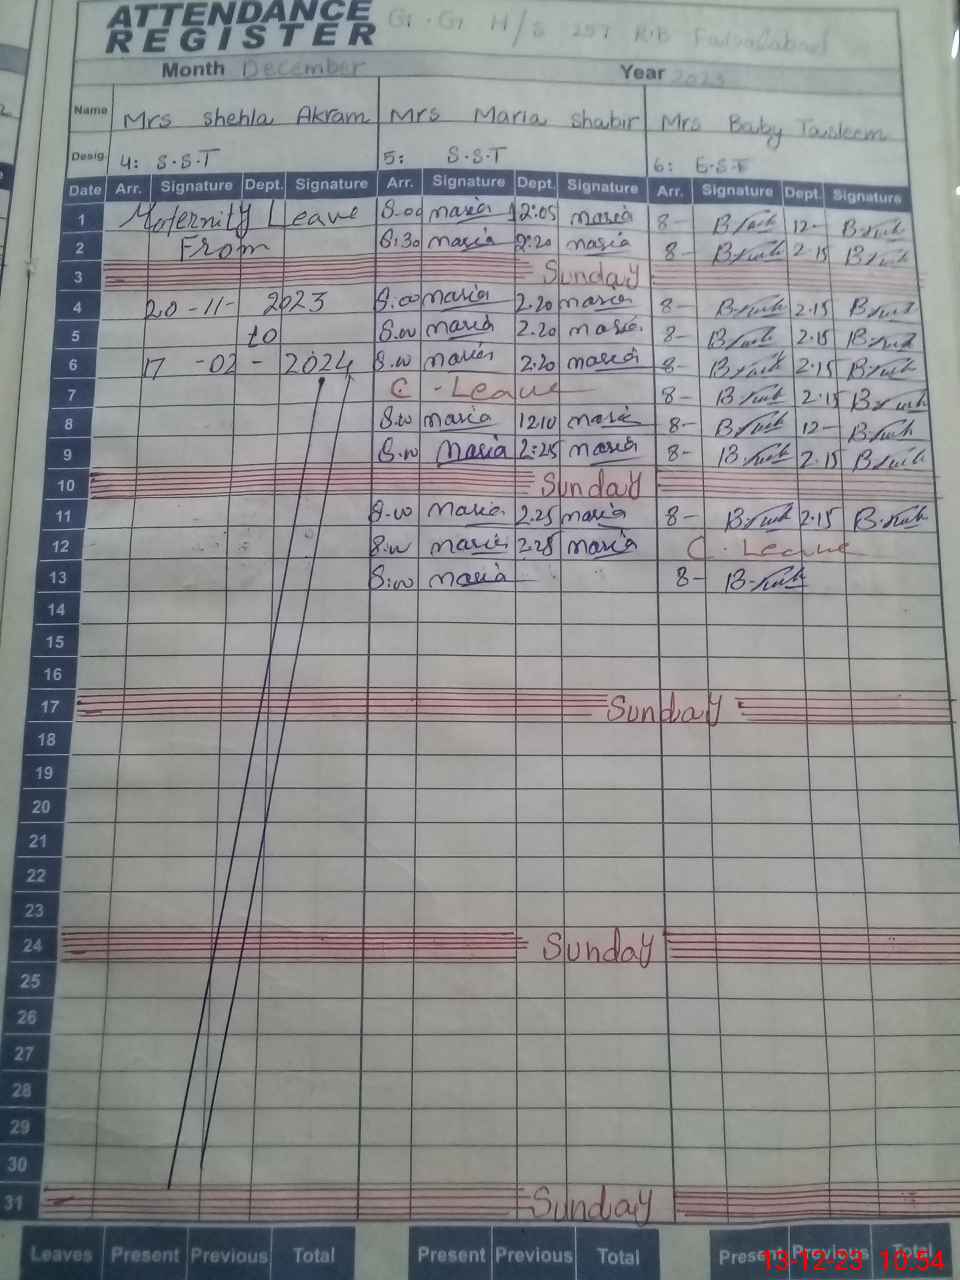 ATTENDANCE REGISTER G.G H/S 257 R.B Faisalabad
Month December Year 2023
Name Mrs Shehla Akram Mrs Maria Shabir Mrs Baby Tasleem
Desig. 4: S.S.T 5: S.S.T 6: E.S.E
Date Arr. Signature Dept. Signature Arr. Signature Dept. Signature Arr. Signature Dept. Signature
1 Maternity Leave 8.00 maria 12:05 maria 8- 12-
2 From 8:30 maria 2:20 maria 8- 2.15
3 Sunday
4 20-11-2023 8.00 maria 2.20 maria 8- 2.15
5 to 8.00 maria 2.20 maria 8- 2.15
6 17-02-2024 8.00 maria 2.20 maria 8- 2.15
7 C-Leave 8- 2.15
8 8.00 maria 12.10 maria 8- 12-
9 8.00 maria 2:25 maria 8- 2.15
10 Sunday
11 8.00 maria 2.25 maria 8- 2.15
12 8.00 maria 2.25 maria C.Leave
13 8:00 maria 8-
14
15
16
17 Sunday
18
19
20
21
22
23
24 Sunday
25
26
27
28
29
30
31 Sunday
Leaves Present Previous Total Present Previous Total Present Previous Total
13-12-23 10:54